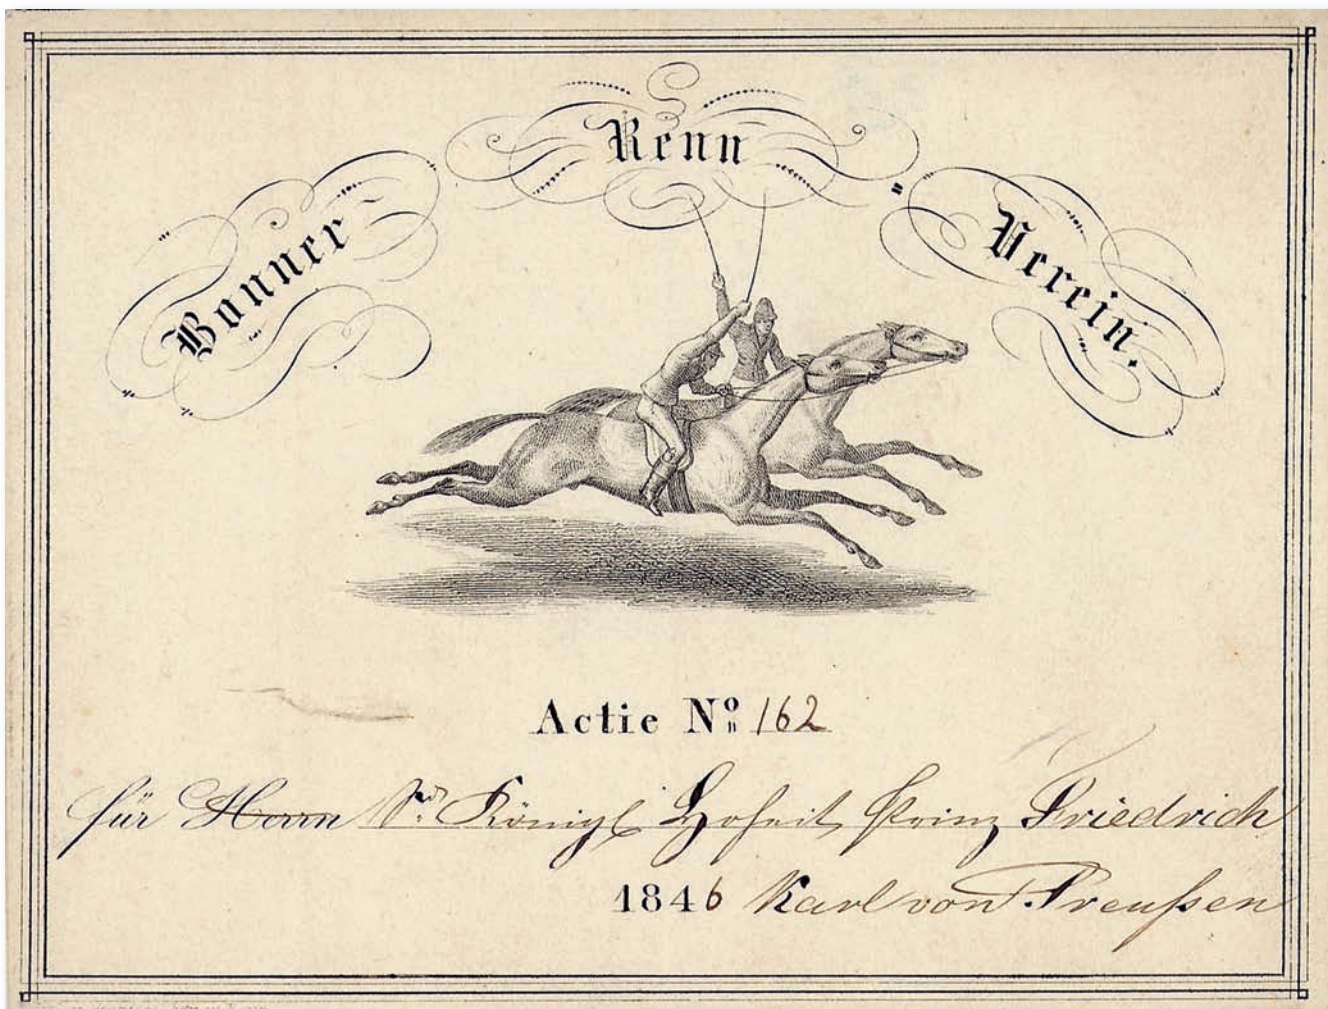 Bonner- Renn- Verein.
Actie No 162
für Herrn Sr. Königl Hoheit Prinz Friedrich
1846 Karl von Preußen